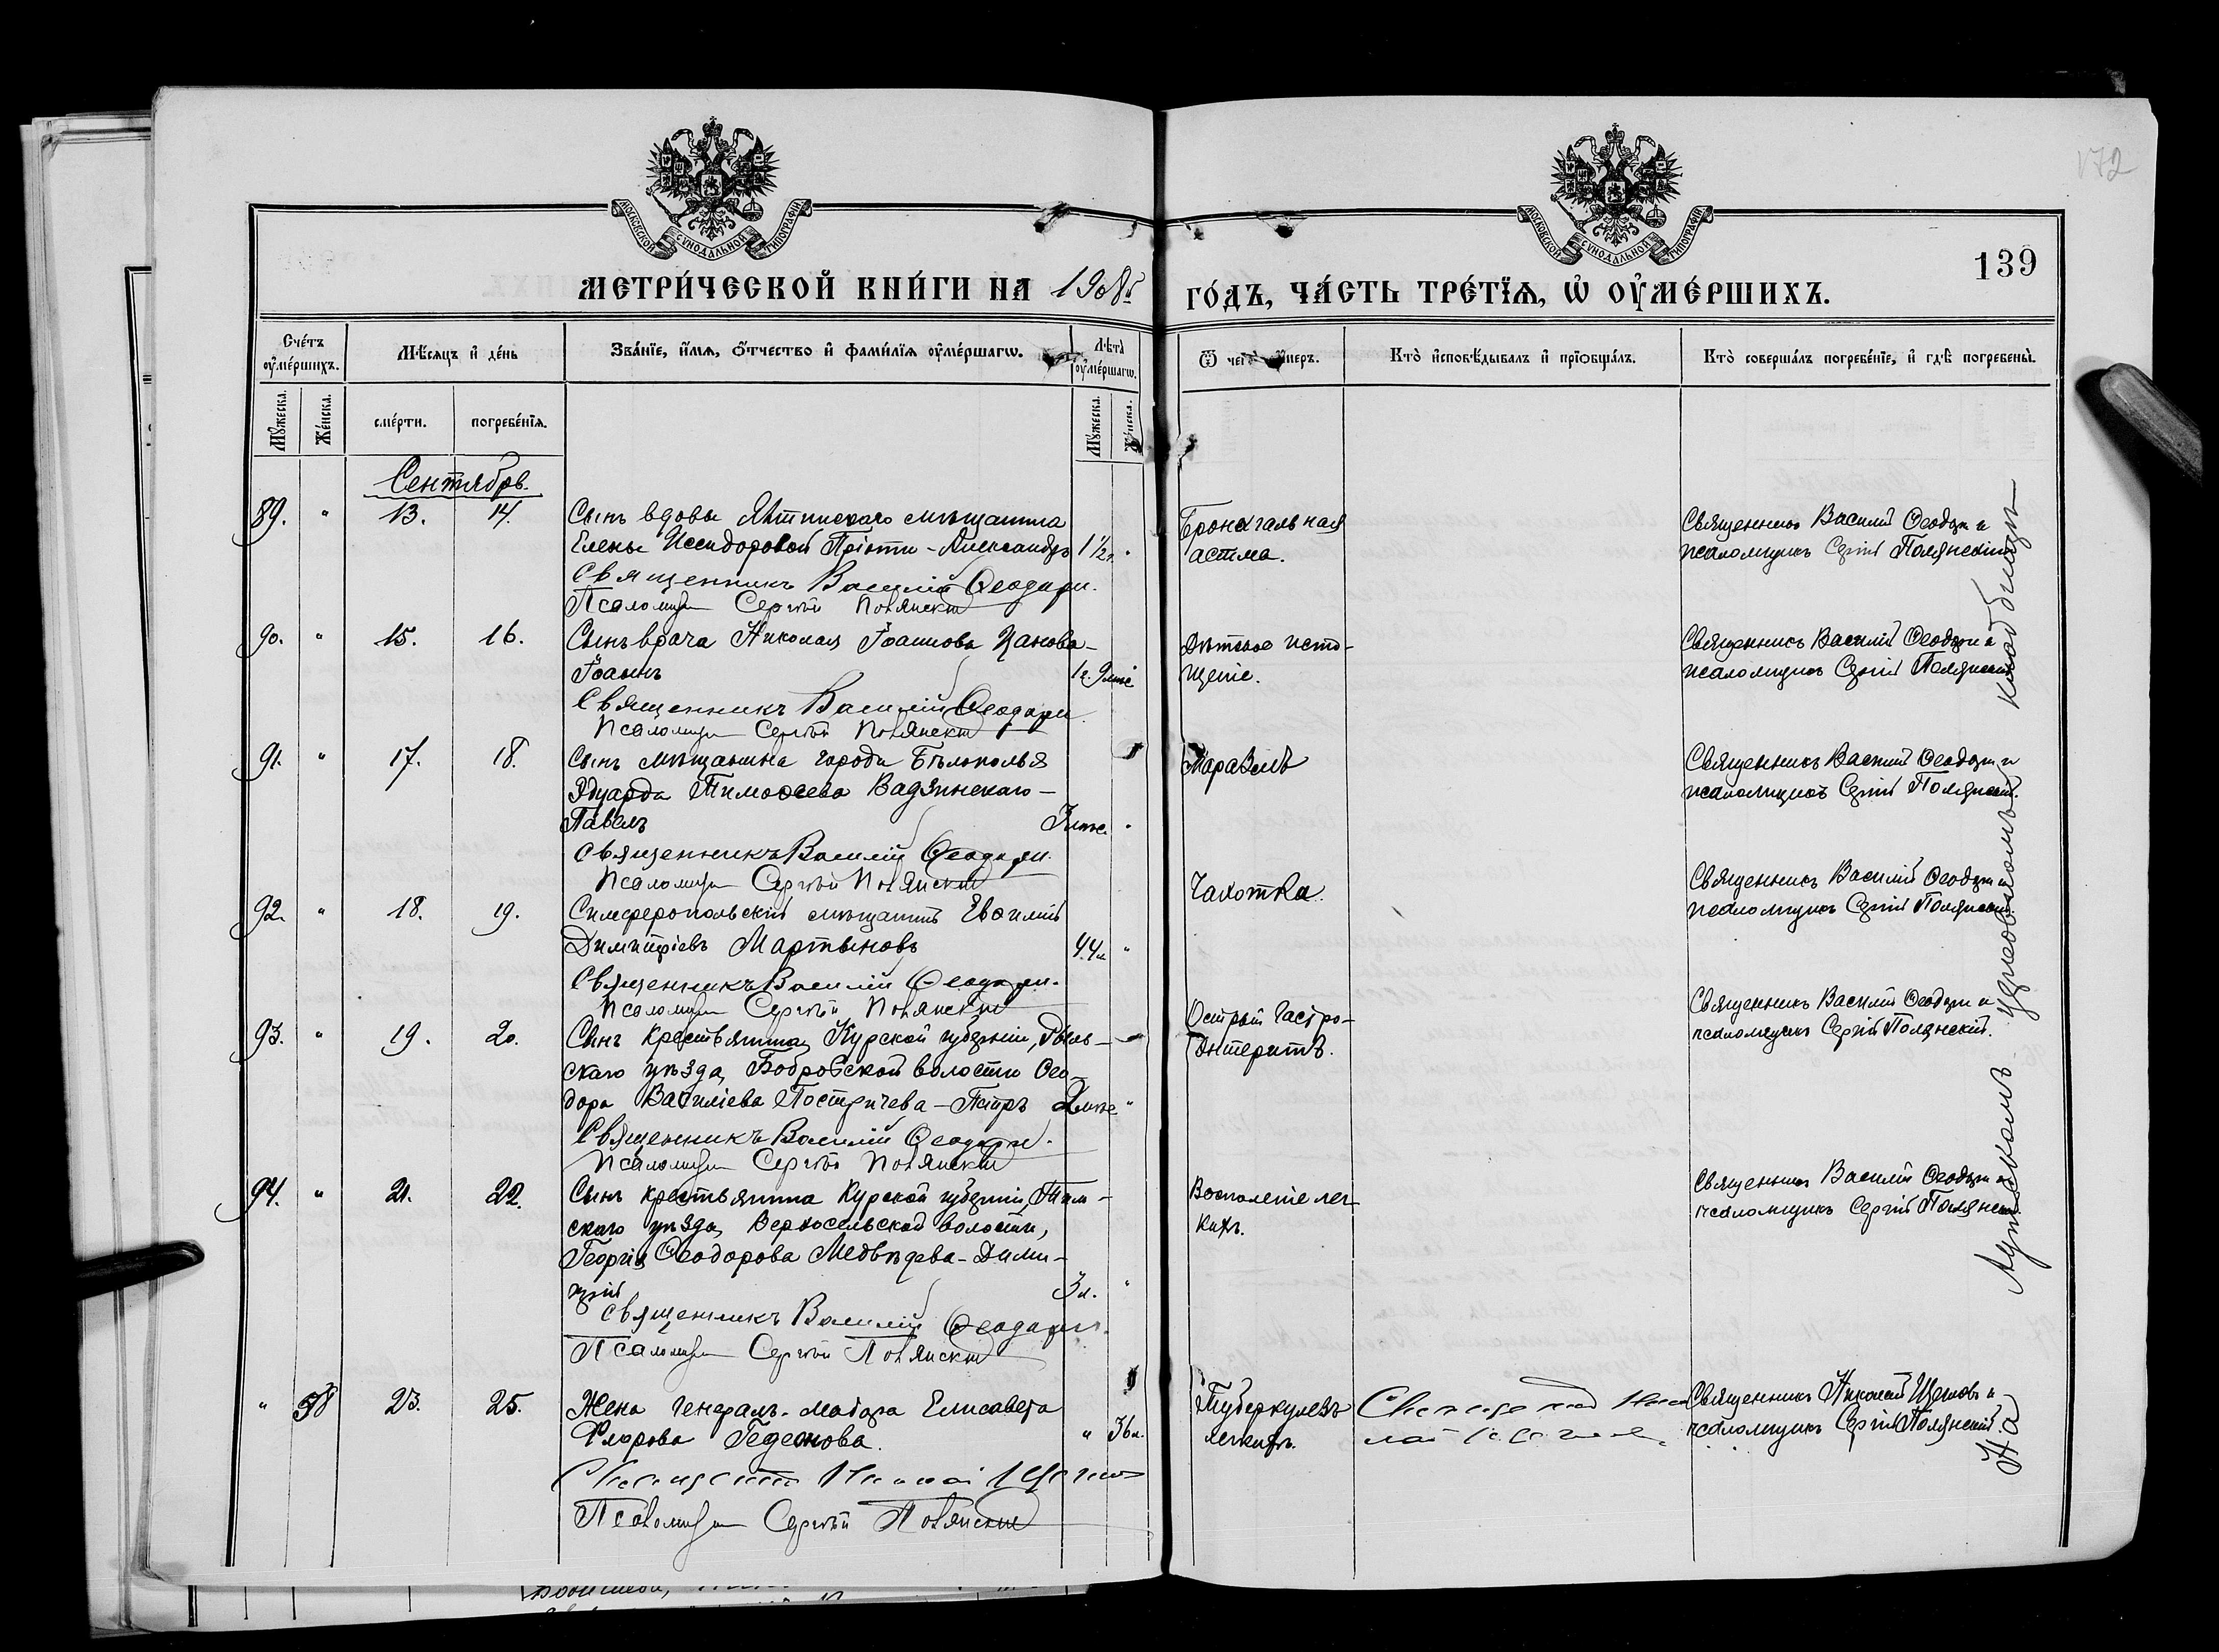 172
139
МОСКОВСКОЙ СУНОДАЛЬНОЙ ТИПОГРАФІИ
МОСКОВСКОЙ СУНОДАЛЬНОЙ ТИПОГРАФІИ
МЕТРИ́ЧЕСКОЙ КНИ́ГИ НА 1908й
ГО́ДЪ, ЧА́СТЬ ТРЕ́ТЇѦ, Ѡ҆ ОУ҆МЕ́РШИХЪ.
Сче́тъ оу҆ме́ршихъ.
Мѣ́сяцъ и҆ де́нь
Зва́нїе, и҆́мѧ, ѻ҆́тчество и҆ фами́лїѧ оу҆ме́ршагѡ.
Лѣ́та оу҆ме́ршагѡ.
Мꙋ́жеска.
Же́нска.
сме́рти.
погребе́нїѧ.
Мꙋ́жеска.
Же́нска.
Ѿ чегѡ̀ оу҆́меръ.
Кто̀ и҆сповѣ́дывалъ и҆ прїѻбща́лъ.
Кто̀ соверша́лъ погребе́нїе, и҆ гдѣ̀ погребены̀.
Сентябрь.
89. " 13. 14. Сынъ вдовы Ялтинскаго мѣщанина
Елены Исидоровой Пріоти - Александръ 1 1/2 г. "
Священникъ Василій Ѳеодори.
Псаломщ Сергѣй Полянскій
Бронхіальная
астма.
Священникъ Василій Ѳеодори и
псаломщикъ Сергій Полянскій
90. " 15. 16. Сынъ врача Николая Іоаннова Цанова -
Іоаннъ 1 г. 9 мѣс
Священникъ Василій Ѳеодори.
Псаломщ Сергѣй Полянскій
Дѣтское исто-
щеніе.
Священникъ Василій Ѳеодори и
псаломщикъ Сергій Полянскій
91. " 17. 18. Сынъ мѣщанина города Бѣлополья
Эдуарда Тимоѳеева Вадзинскаго -
Павелъ 3 мѣс. "
Священникъ Василій Ѳеодори.
Псаломщ Сергѣй Полянскій
Маразмъ
Священникъ Василій Ѳеодори и
псаломщикъ Сергій Полянскій.
92. " 18. 19. Симферопольскій мѣщанинъ Евѳимій
Димитріевъ Мартыновъ 44 л "
Священникъ Василій Ѳеодори.
Псаломщ Сергѣй Полянскій
Чахотка.
Священникъ Василій Ѳеодори и
псаломщикъ Сергій Полянскій.
93. " 19. 20. Сынъ крестьянина Курской губерніи, Рыль-
скаго уѣзда, Бобровской волости Ѳео-
дора Василіева Постричева - Петръ 2 мѣс "
Священникъ Василій Ѳеодори.
Псаломщ Сергѣй Полянскій
Острый гастро-
энтеритъ.
Священникъ Василій Ѳеодори и
псаломщикъ Сергій Полянскій.
94. " 21. 22. Сынъ крестьянина Курской губерніи, Тим-
скаго уѣзда, Верхосельской волости,
Георгія Ѳеодорова Медвѣдева - Дими-
трій 3 л. "
Священникъ Василій Ѳеодори.
Псаломщ Сергѣй Полянскій
Воспаленіе лег-
кихъ.
Священникъ Василій Ѳеодори и
псаломщикъ Сергій Полянскій.
" 58 23. 25. Жена генералъ-маіора Елисавета
Флорова Гедеонова. " 36 л.
Псаломщ Сергѣй Полянскій
Туберкулезъ
легкихъ.
Священникъ Николай Щегловъ и
псаломщикъ Сергій Полянскій.
На Аутскомъ успеновскомъ кладбищѣ